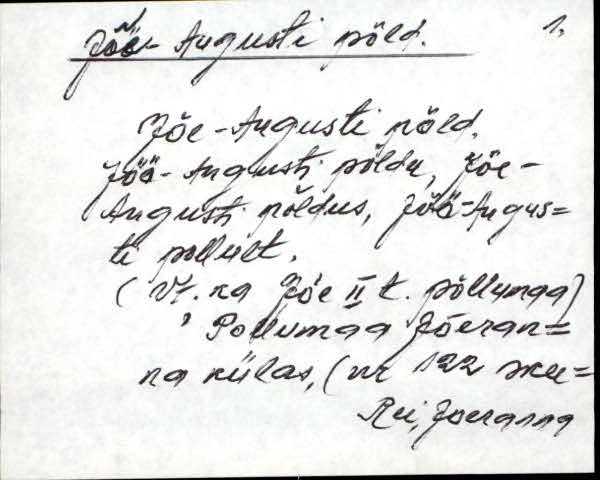 Jõõ-Augusti põld. 1.
Jõe-Augusti põld,
Jõõ-Augusti põldu, Jõe-
Augusti põldus, Jõõ-Augus=
ti põllult.
(Vt. ka Jõe II t. põllumaa)
Põllumaa Jõeran=
na külas, (nr 122
Rei, Jõeranna